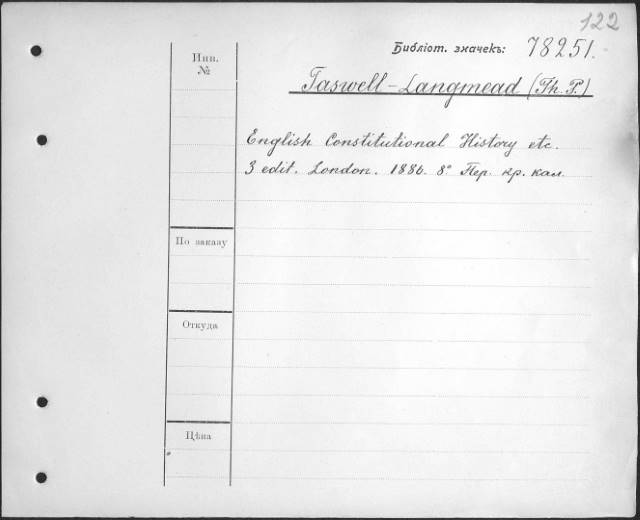 122
Библіот. значекъ: 78251.
Инв.
№
Taswell-Langmead (Th. P.)
English Constitutional History etc.
3 edit. London. 1886. 8° Пер. кр. кал.
По заказу
Откуда
Цѣна